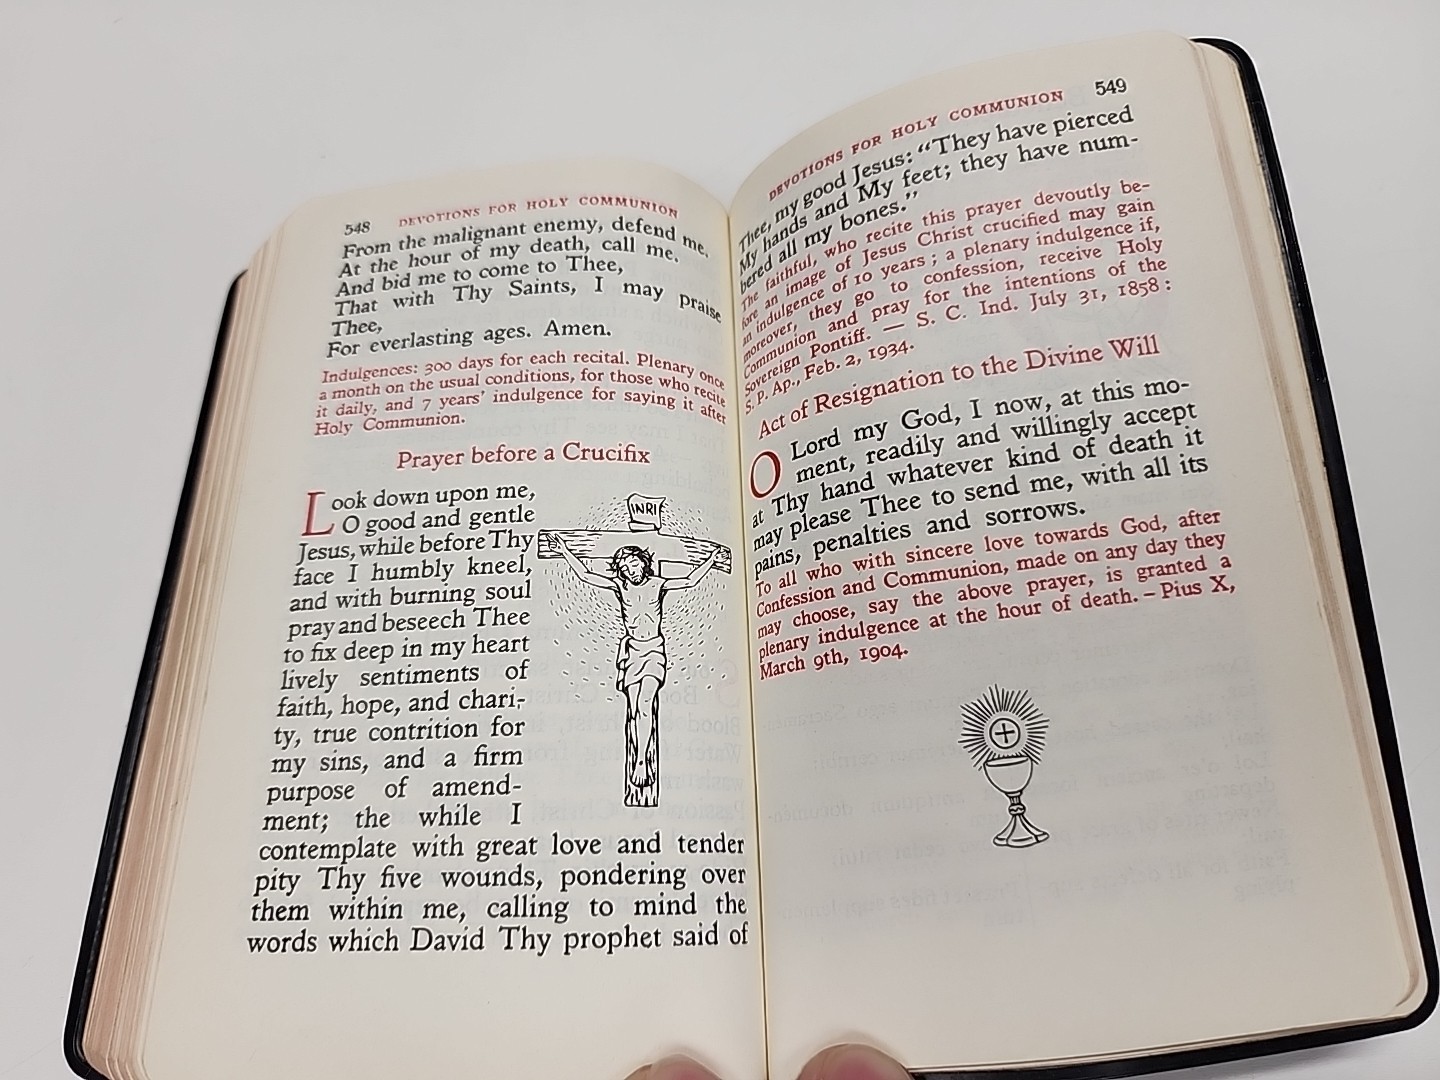 548 DEVOTIONS FOR HOLY COMMUNION
From the malignant enemy, defend me.
At the hour of my death, call me.
And bid me to come to Thee,
That with Thy Saints, I may praise
Thee,
For everlasting ages. Amen.
Indulgences: 300 days for each recital. Plenary once
a month on the usual conditions, for those who recite
it daily, and 7 years' indulgence for saying it after
Holy Communion.
Prayer before a Crucifix
Look down upon me,
O good and gentle
Jesus, while before Thy
face I humbly kneel,
and with burning soul
pray and beseech Thee
to fix deep in my heart
lively sentiments of
faith, hope, and chari-
ty, true contrition for
my sins, and a firm
purpose of amend-
ment; the while I
contemplate with great love and tender
pity Thy five wounds, pondering over
them within me, calling to mind the
words which David Thy prophet said of
INRI
DEVOTIONS FOR HOLY COMMUNION 549
Thee, my good Jesus: "They have pierced
My hands and My feet; they have num-
bered all my bones."
The faithful, who recite this prayer devoutly be-
fore an image of Jesus Christ crucified may gain
an indulgence of 10 years; a plenary indulgence if,
moreover, they go to confession, receive Holy
Communion and pray for the intentions of the
Sovereign Pontiff. — S. C. Ind. July 31, 1858:
S. P. Ap., Feb. 2, 1934.
Act of Resignation to the Divine Will
O Lord my God, I now, at this mo-
ment, readily and willingly accept
at Thy hand whatever kind of death it
may please Thee to send me, with all its
pains, penalties and sorrows.
To all who with sincere love towards God, after
Confession and Communion, made on any day they
may choose, say the above prayer, is granted a
plenary indulgence at the hour of death. – Pius X,
March 9th, 1904.